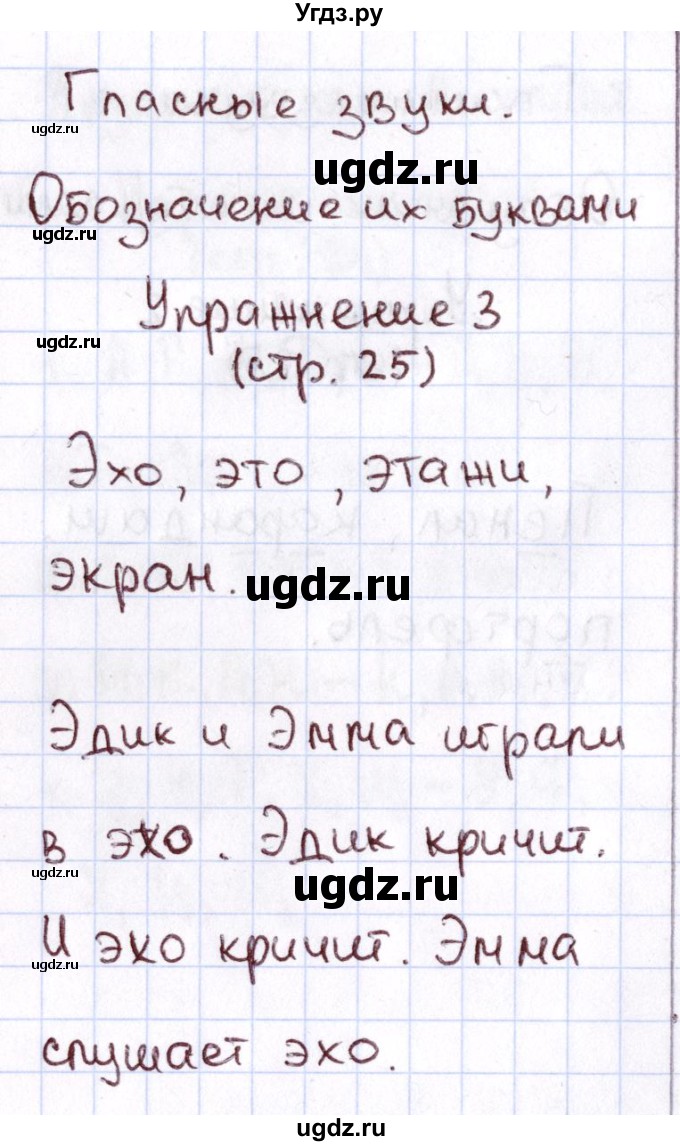 Угдз.ру
Гласные звуки.
ugdz.ru
ugdz.ru
Обозначение их буквами
ugdz.ru
Упражнение 3
ugdz.ru
(стр. 25)
Эхо, это, этажи,
экран.
ugdz.ru
Эдик и Эмма играли
в эхо. Эдик кричит.
ugdz.ru
ugdz.ru
И эхо кричит. Эмма
ugdz.ru
слушает эхо.
ugdz.ru